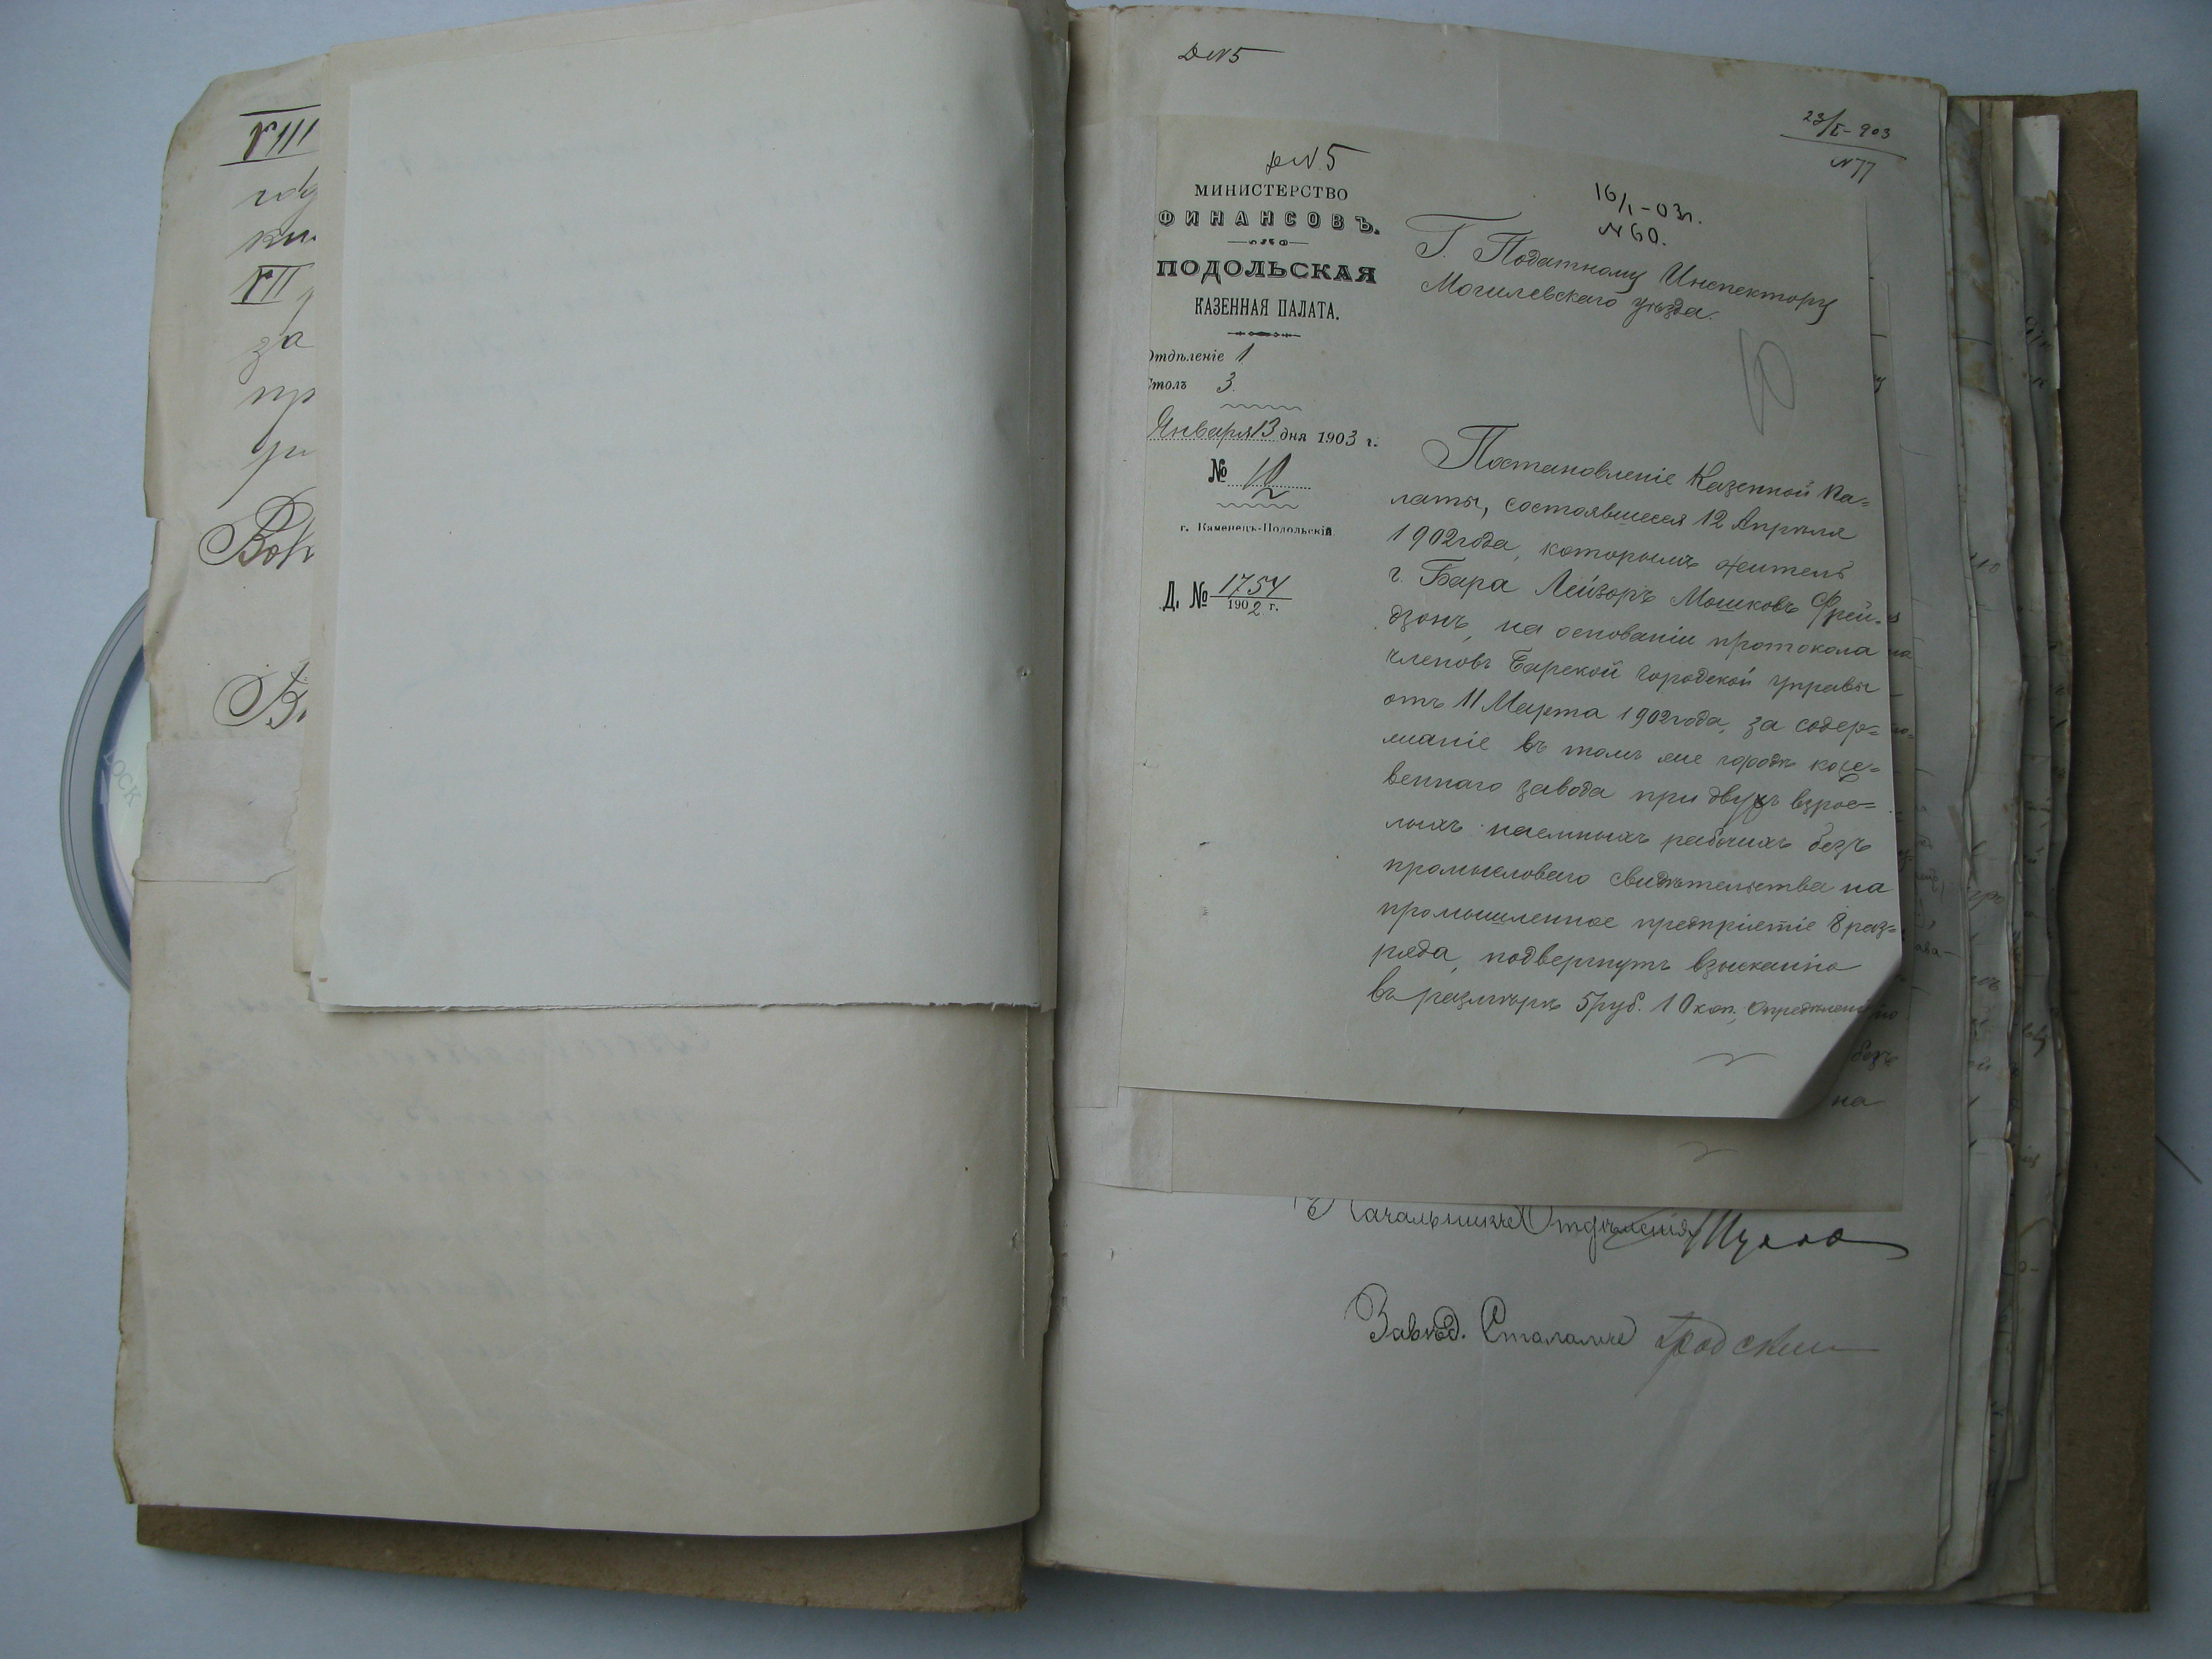 VIII
год
за
пр
Д №5
23/I-903
№77
Д №5
МИНИСТЕРСТВО
ФИНАНСОВЪ.
ПОДОЛЬСКАЯ
КАЗЕННАЯ ПАЛАТА.
Отдѣленіе 1
Столъ 3.
Января 13 дня 1903 г.
№ 10
г. Каменецъ-Подольскій
Д. № 1754
1902 г.
16/I-03г.
№ 60.
Г. Податному Инспектору
Могилевскаго уѣзда.
Постановленіе Казенной Па=
латы, состоявшееся 12 Апрѣля
1902 года, которымъ житель
г. Бара Лейзоръ Мошковъ Фрей-
дзонъ, на основаніи протокола
членовъ Барской городской управы
отъ 11 Марта 1902 года, за содер=
жаніе въ томъ же городѣ коже=
веннаго завода при двухъ взрос=
лыхъ наемныхъ рабочихъ безъ
промысловаго свидѣтельства на
промышленное предпріятіе 8 раз=
ряда, подвергнутъ взысканію
въ размѣрѣ 5 руб. 10 коп., Опредѣленіе
безъ
на
Начальникъ Отдѣленія
Завѣд. Столомъ Гродскій